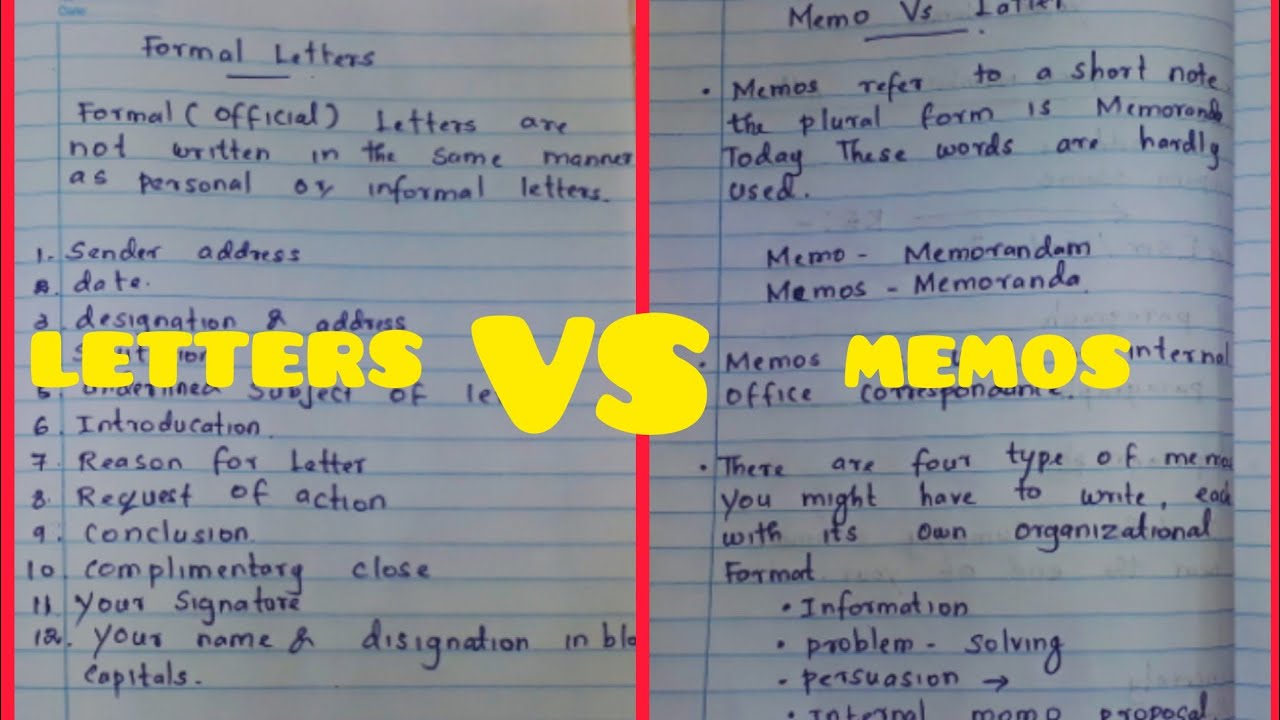 Date
Formal Letters
Formal (official) Letters are
not written in the same manner
as personal or informal letters.
1. Sender address
2. date.
3. designation & address
5. Underlined subject of
6. Introducation.
7. Reason for Letter
8. Request of action
9. conclusion.
10 complimentary close
11. your signature
12. your name & disignation in
capitals.
LETTERS VS MEMOS
Memo Vs Latter
• Memos refer to a short note
the plural form is Memoranda
Today These words are hardly
used.
Memo - Memorandam
Memos - Memoranda
• Memos internal
office correspondance.
• There are four type of memo
you might have to write, each
with its own organizational
Format
• Information
• problem - solving
• persuasion →
• Internal memo proposal